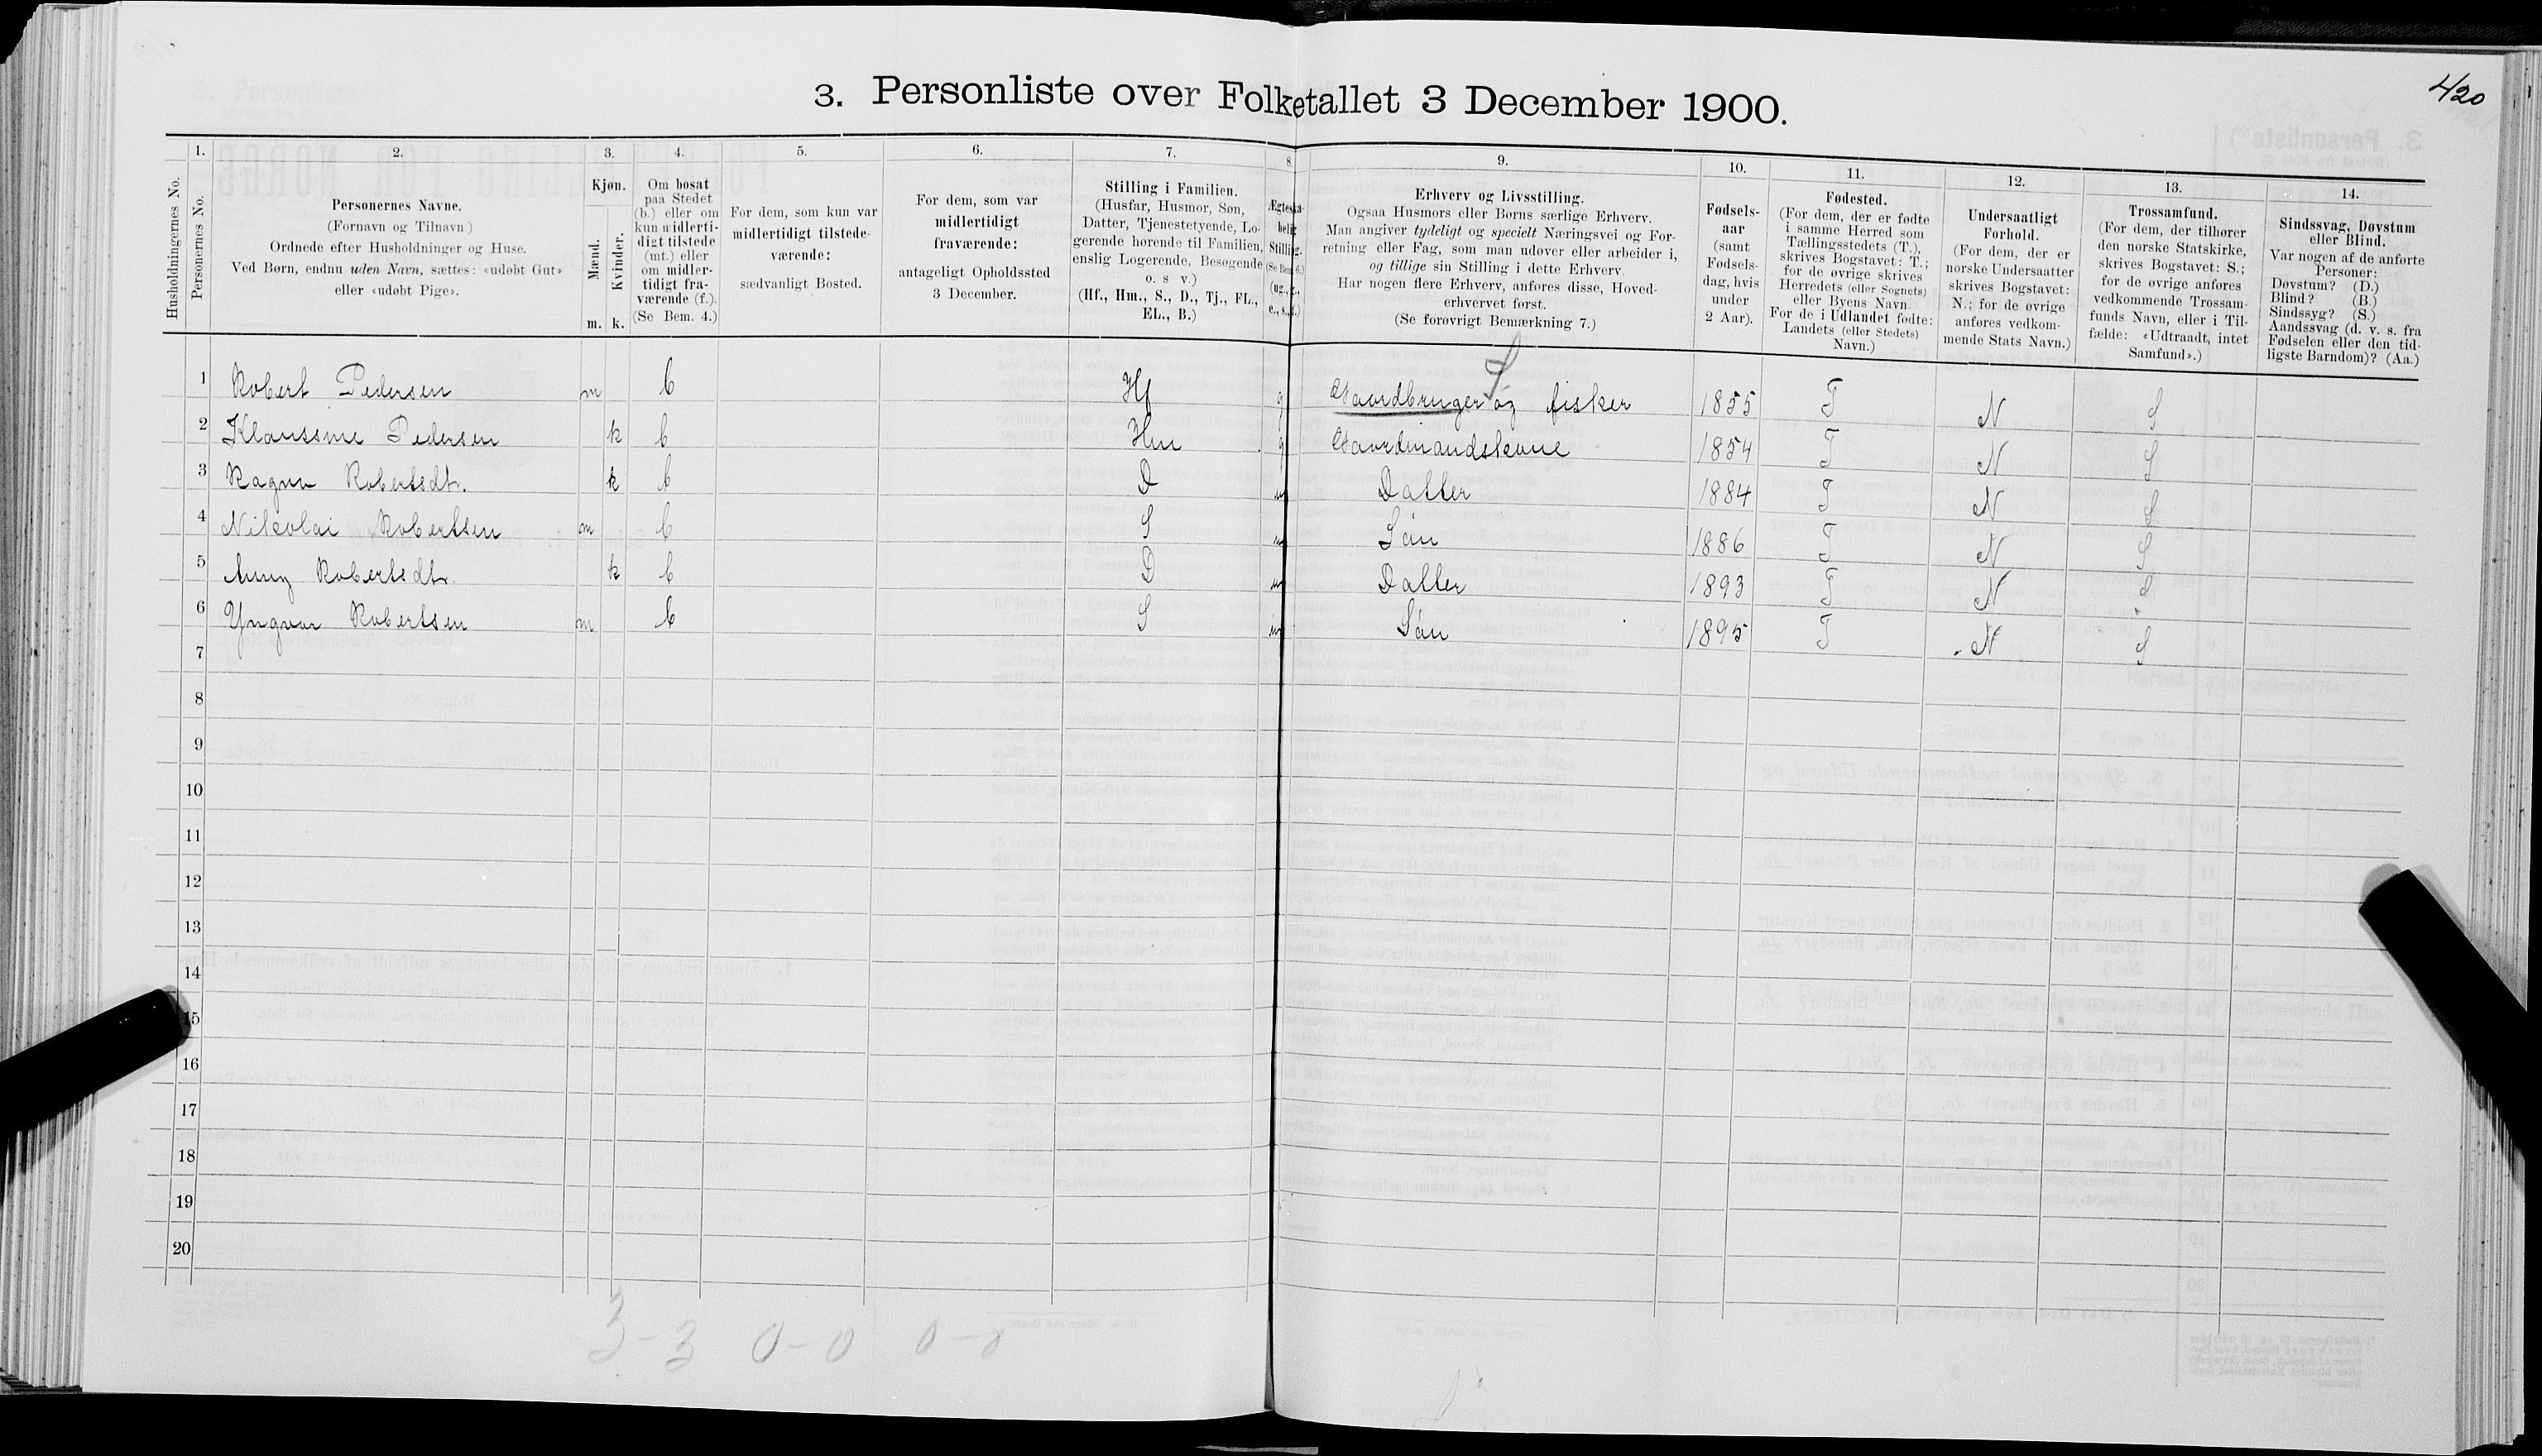 420
3. Personliste over Folketallet 3 December 1900.
Husholdningernes No.
1.
Personernes No.
2.
Personernes Navne.
(Fornavn og Tilnavn)
Ordnede efter Husholdninger og Huse.
Ved Børn, endnu uden Navn, sættes: «udøbt Gut»
eller «udøbt Pige».
3.
Kjøn.
Mænd.
Kvinder.
m. k.
4.
Om bosat
paa Stedet
(b.) eller om
kun midlerti-
digt tilstede
(mt.) eller
om midler-
tidigt fra-
værende (f.).
(Se Bem. 4.)
5.
For dem, som kun var
midlertidigt tilstede-
værende:
sædvanligt Bosted.
6.
For dem, som var
midlertidigt
fraværende:
antageligt Opholdssted
3 December.
7.
Stilling i Familien.
(Husfar, Husmor, Søn,
Datter, Tjenestetyende, Lo-
gerende hørende til Familien,
enslig Logerende, Besøgende
o. s v.)
(Hf., Hm., S., D., Tj., FL.,
EL., B.)
8.
Ægteska-
belig
Stilling.
(Se Bem. 6.)
(ug., g.,
e., s., f.)
9.
Erhverv og Livsstilling.
Ogsaa Husmors eller Børns særlige Erhverv.
Man angiver tydeligt og specielt Næringsvei og For-
retning eller Fag, som man udøver eller arbeider i,
og tillige sin Stilling i dette Erhverv.
Har nogen flere Erhverv, anføres disse, Hoved-
erhvervet først.
(Se forøvrigt Bemærkning 7.)
10.
Fødsels-
aar
(samt
Fødsels-
dag, hvis
under
2 Aar).
11.
Fødested.
(For dem, der er fødte
i samme Herred som
Tællingsstedets (T.),
skrives Bogstavet: T.;
for de øvrige skrives
Herredets (eller Sognets)
eller Byens Navn.
For de i Udlandet fødte:
Landets (eller Stedets)
Navn.)
12.
Undersaatligt
Forhold.
(For dem, der er
norske Undersaatter
skrives Bogstavet:
N.; for de øvrige
anføres vedkom-
mende Stats Navn.)
13.
Trossamfund.
(For dem, der tilhører
den norske Statskirke,
skrives Bogstavet: S.;
for de øvrige anføres
vedkommende Trossam-
funds Navn, eller i Til-
fælde: «Udtraadt, intet
Samfund».)
14.
Sindssvag, Døvstum
eller Blind.
Var nogen af de anførte
Personer:
Døvstum? (D.)
Blind? (B.)
Sindssyg? (S.)
Aandssvag (d. v. s. fra
Fødselen eller den tid-
ligste Barndom)? (Aa.)
1 Robert Pedersen m b Hf g Gaardbruger og fisker 1855 T N S
2 Klaussine Pedersen k b Hm g Gaardmandskone 1854 T N S
3 Ragna Robertsdt. k b D u Datter 1884 T N S
4 Nikolai Robertsen m b S u Søn 1886 T N S
5 Anny Robertsdtr. k b D u Datter 1893 T N S
6 Yngvar Robertsen m b S u Søn 1895 T N S
7
8
9
10
11
12
13
14
15
16
17
18
19
20
3-3 0-0 0-0